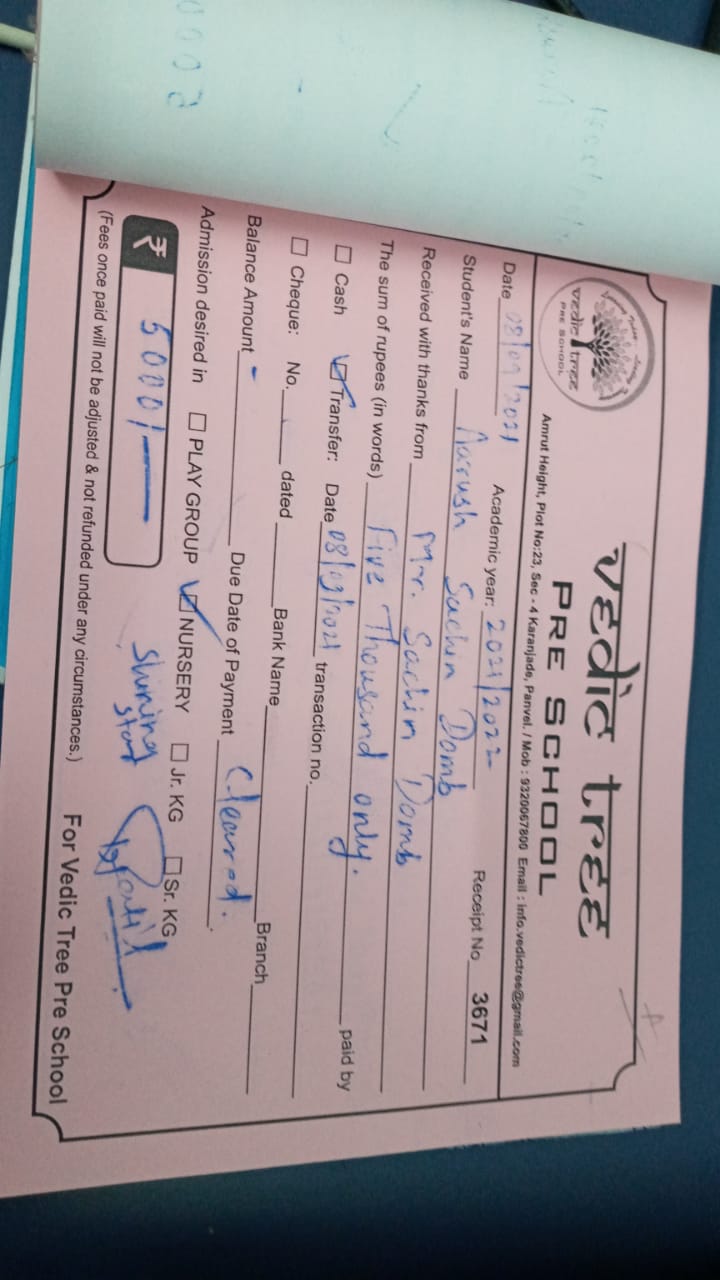 vedic tree
PRE SCHOOL
vedic tree
PRE SCHOOL
Amrut Height, Plot No:23, Sec - 4 Karanjade, Panvel. / Mob : 9320067800 Email : info.vedictree@gmail.com
Date 08/09/2021 Academic year: 2021/2022 Receipt No 3671
Student's Name Aarush Sachin Domb
Received with thanks from Mr. Sachin Domb
The sum of rupees (in words) Five Thousand only. paid by
☐ Cash ☑ Transfer: Date 08/09/2021 transaction no.
☐ Cheque: No. dated Bank Name Branch
Balance Amount - Due Date of Payment Cleared.
Admission desired in ☐ PLAY GROUP ☑ NURSERY ☐ Jr. KG ☐ Sr. KG
₹ 5000/- Shining star
(Fees once paid will not be adjusted & not refunded under any circumstances.) For Vedic Tree Pre School